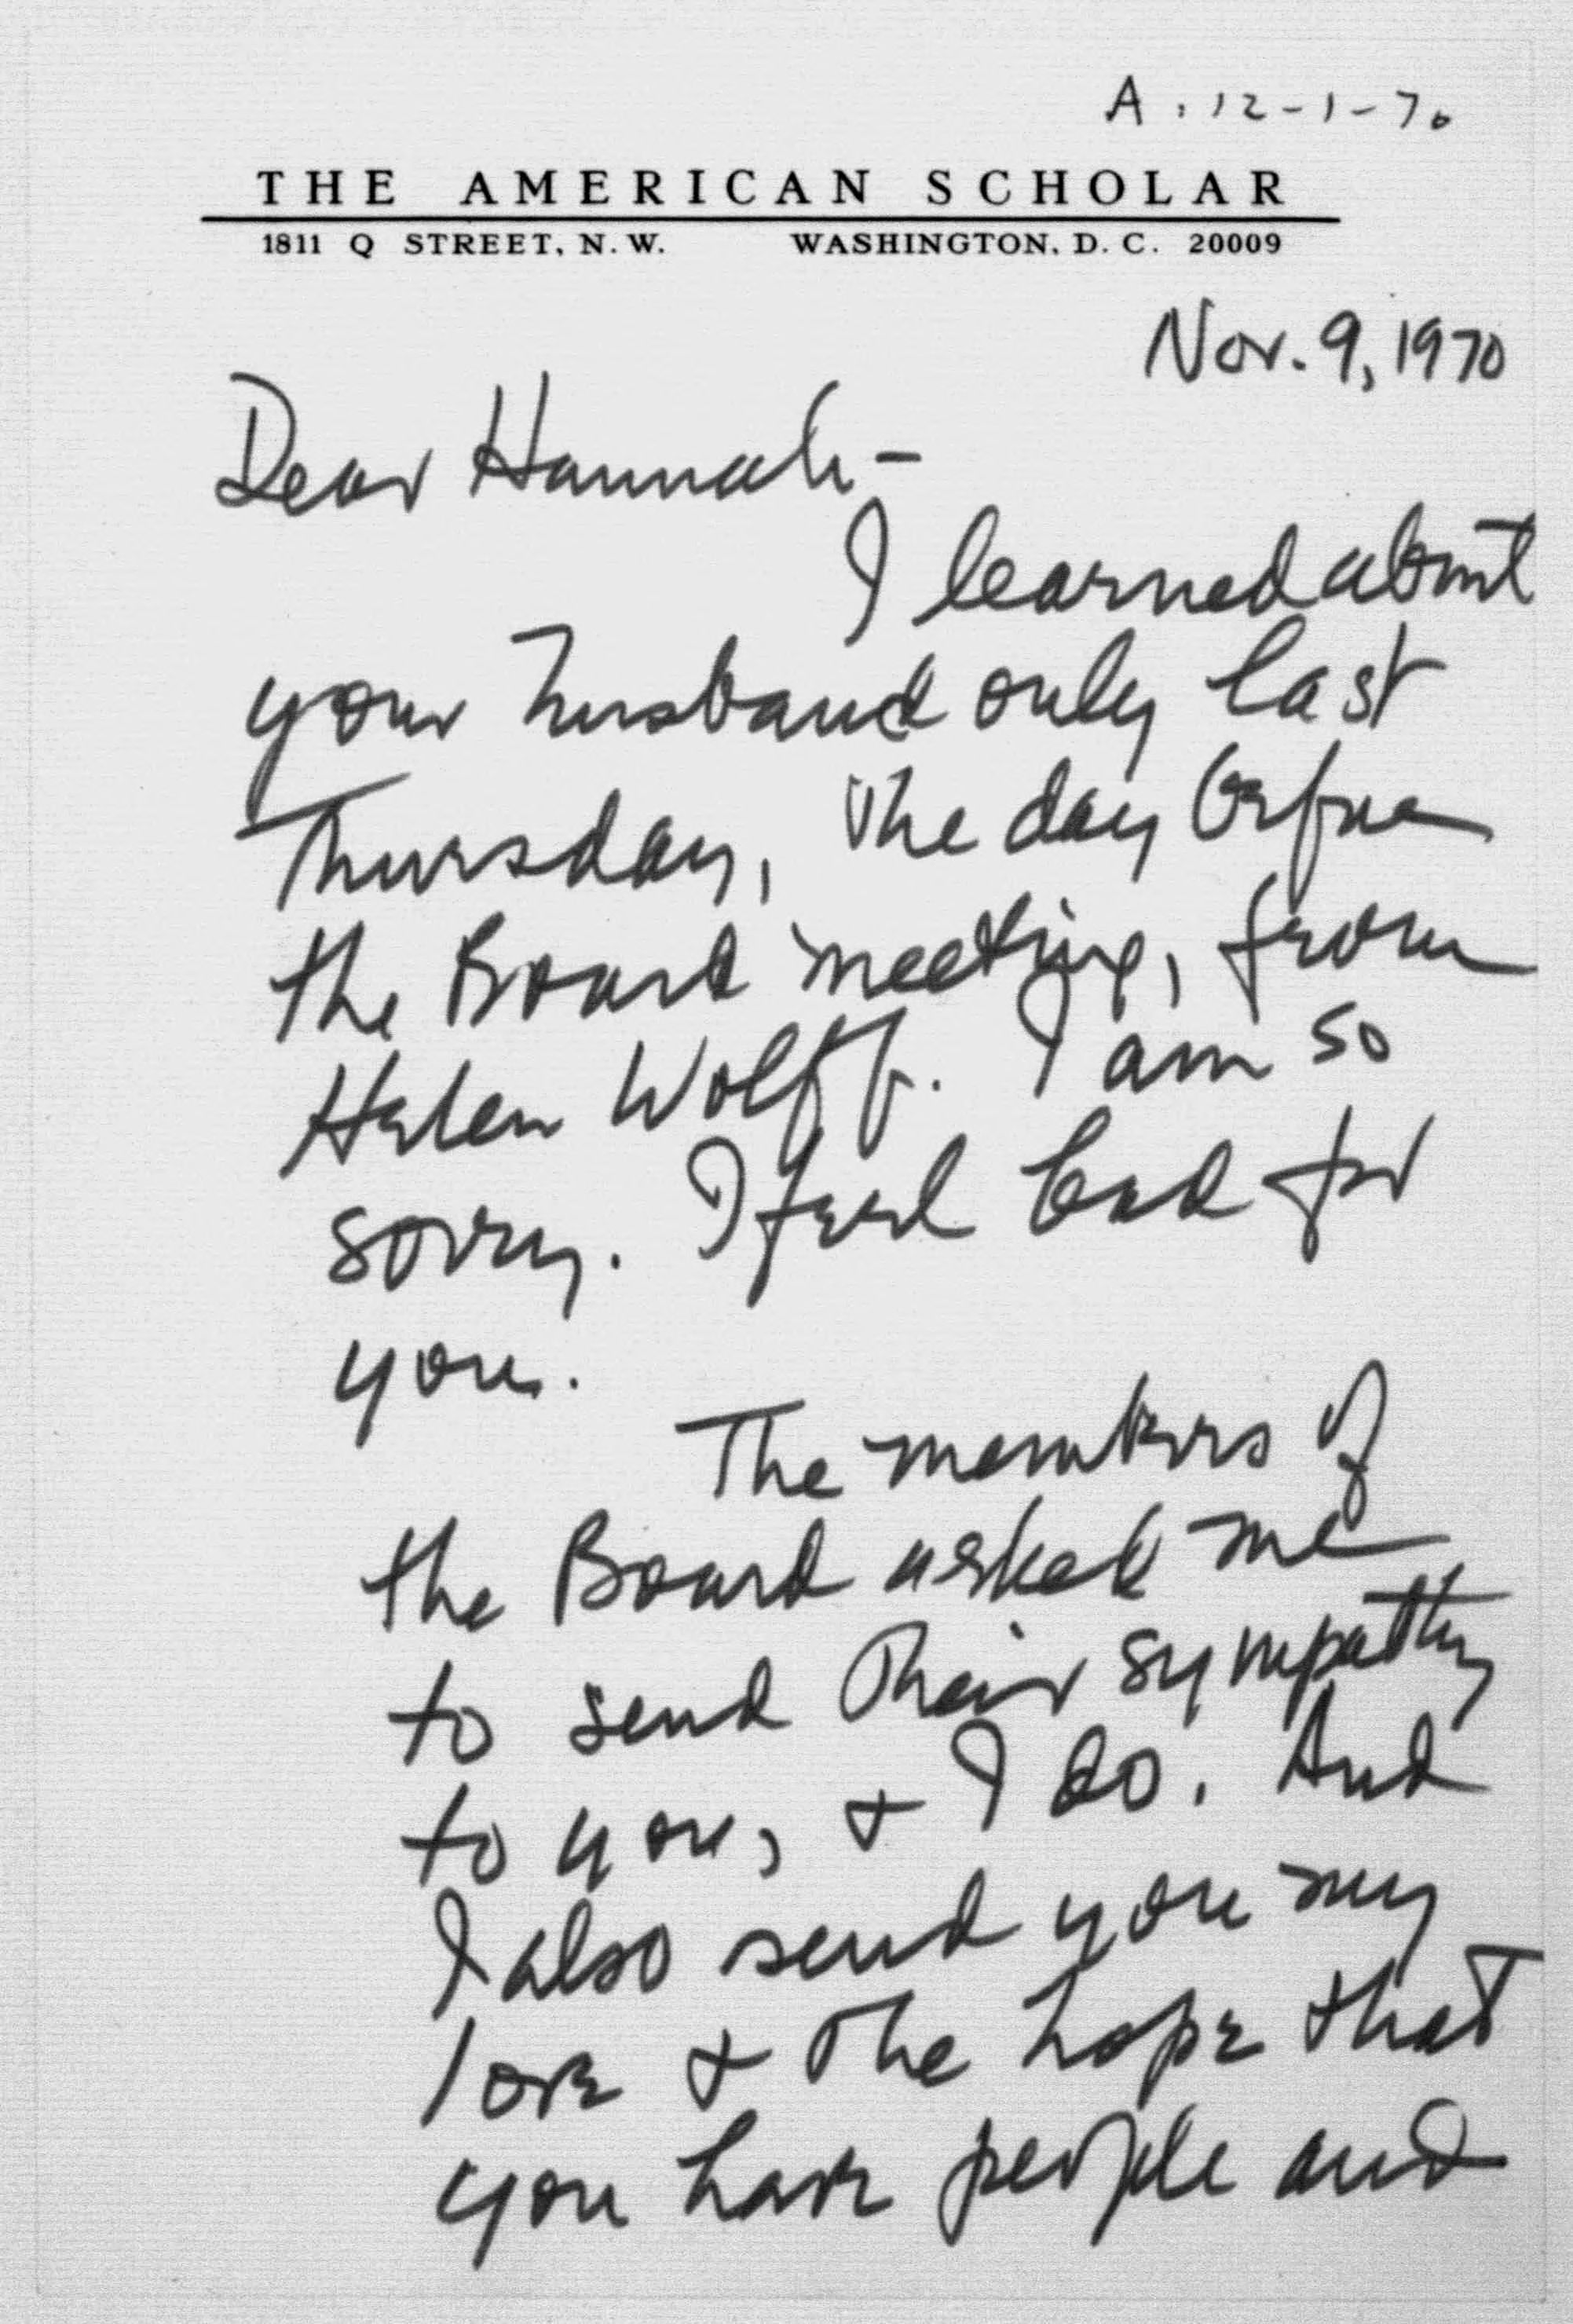 A. 12-1-70
THE AMERICAN SCHOLAR
1811 Q STREET, N. W. WASHINGTON, D. C. 20009
Nov. 9, 1970
Dear Hannah -
I learned about
your husband only last
Thursday, the day before
the Board meeting, from
Helen Wolff. I am so
sorry. I feel bad for
you.
The members of
the Board asked me
to send their sympathy
to you, & I do. And
I also send you my
love & the hope that
you have people and